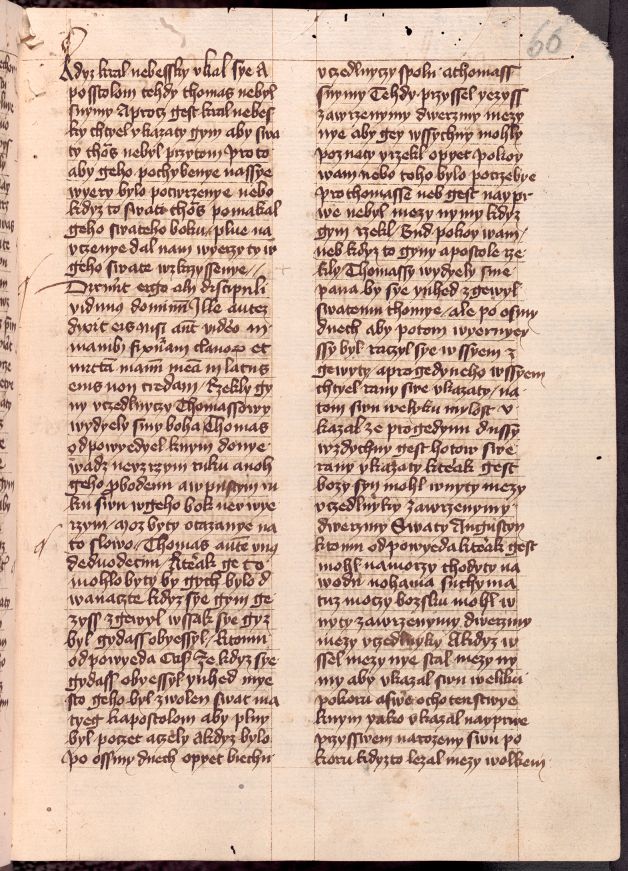 66
Kdyz kral nebessky vkal sye A
posstolom tehdy thomas nebyl
snymy A procz gest kral nebes
ky chtyel vkazaty gym aby swa
ty thos nebyl przytom Pro to
aby geho pochybenye nassye
wyery bylo potwrzenye nebo
kdyz to swati thos pomakal
geho swateho boku plne na
vczenye dal nam wyerzyty w
geho swate wzkrzyssenye
Dixerunt ergo alij discipuli
vidimus dominum Ille autem
dixit eis nisi aut video in
manibus fixuram clauorum et
mittam manum meam in latus
eius non credam Rzekly gy
ny vczedlnyczy Thomassowy
wydyely smy boha Thomas
odpowyedyel knym donye
wadz nevzrzym ruku a noh
geho probodenu a wpustym ru
ku swu w geho bok nevwye
rzym moz byty otazanye na
to slowo Thomas autem vnus
de duodecim Kterak ge to
mohlo byty by gych bylo d
wanaczte kdyz sye gym ge
zyss zgewyl wssak sye gyz
byl gydass obyessyl ktomu
odpowyeda Ze kdyz sye
gydass obyessyl yhned mye
sto geho byl zwolen swat ma
tyeg kapostolom aby plny
byl poczet a czely A kdyz bylo
po ossmy dnech opyet biechu
vczedlnyczy spolu a thomass
snymy Tehdy przyssel yezyss
zawrzenymy dwerzmy mezy
nye aby gey wssychny mohly
poznaty y rzekl opyet Pokoy
wam nebo toho bylo potrzebye
Pro thomasse neb gest naypr
we nebyl mezy nymy kdyz
gym rzekl Bud pokoy wam
neb kdyz to gyny apostole rze
kly Thomassy wydyely sme
pana by sye yhned zgewyl
swatemu thomye ale po osmy
dnech aby potom wyernyey
ssy byl raczyl sye wssyem z
gewyty a pro gedyneho wssyem
chtyel rany swe vkazaty na
tom swu weliku mylost v
kazal ze pro gedynu dussy
wzdychny gest hotow swe
rany vkazaty kterak gest
bozy syn mohl wnyty mezy
vczedlnyky zawrzenymy
dwerzmy Swaty Augustyn
ktomu odpowyeda kterak gest
mohl na morzy chodyty na
wodu nohama suchyma
tuz moczy bozsku mohl w
nyty zawrzenymy dwerzmy
mezy vczedlnyky A kdyz w
ssel mezy nye stal mezy ny
my aby vkazal swu weliku
pokoru a swe ochotenstwye
knym yako vkazal nayprwe
przyssczem narozeny swu po
koru kdyzto lezal mezy wolkem